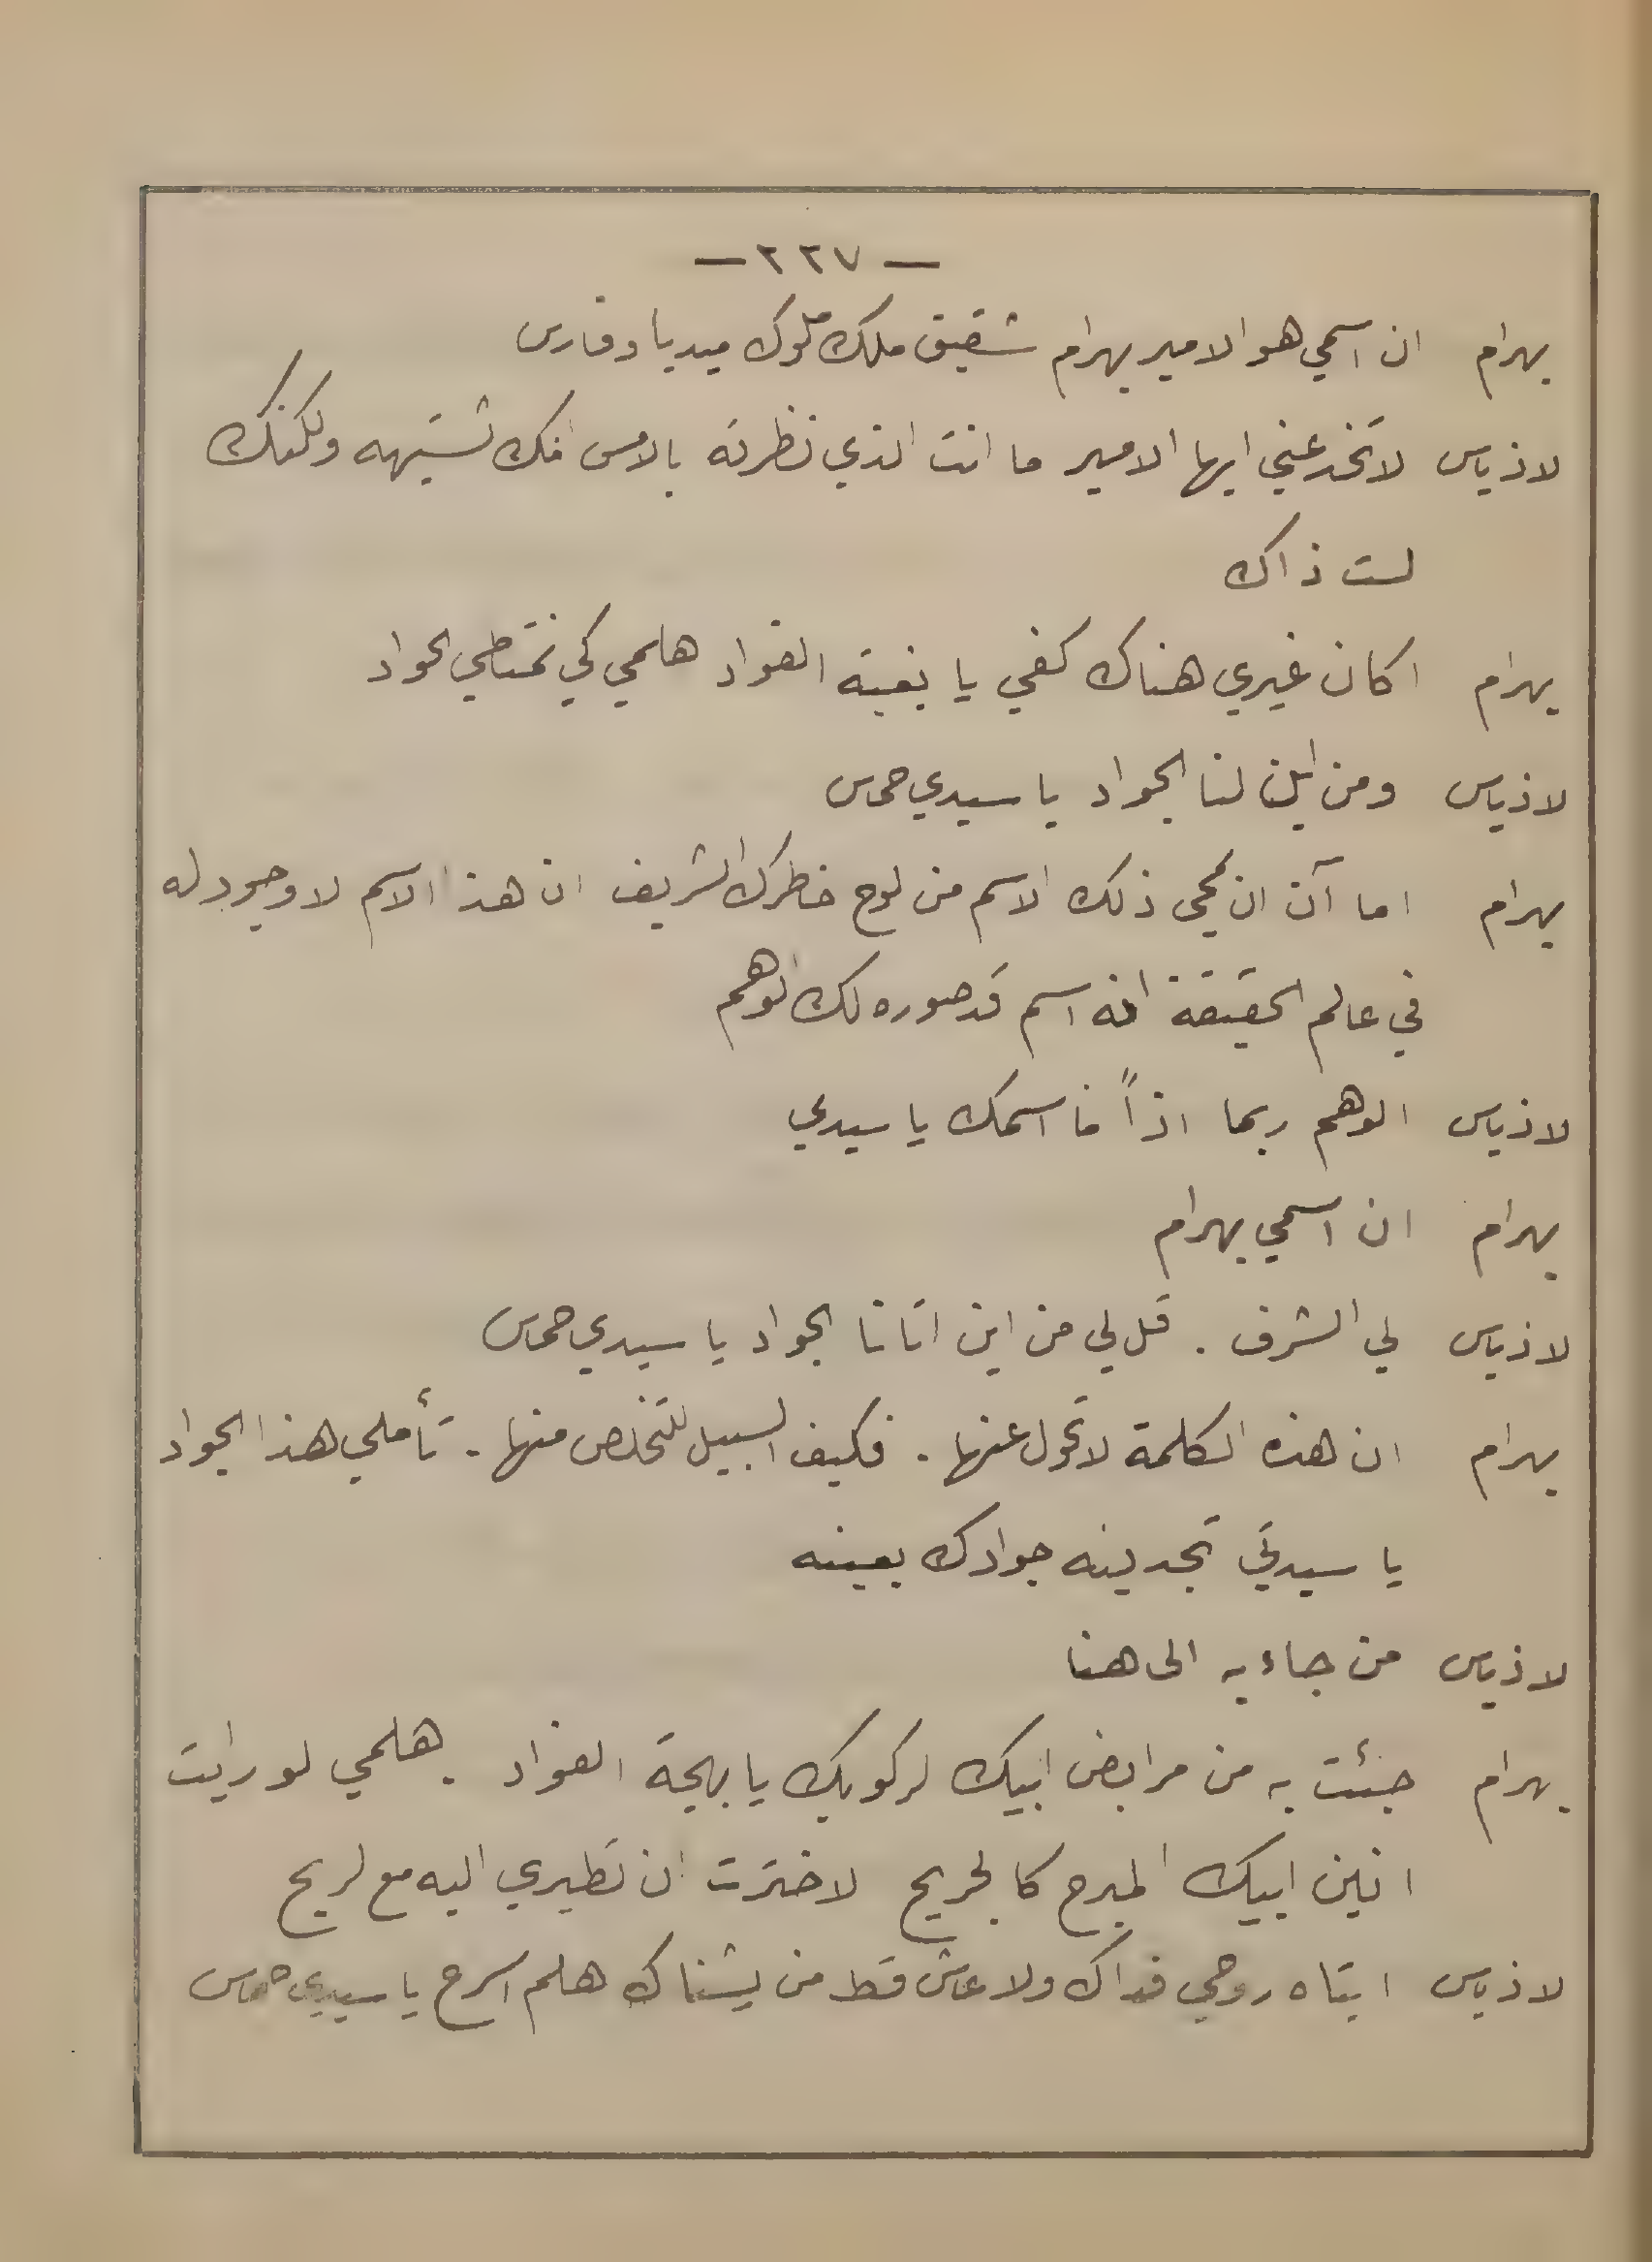 — ٢٢٧ —
بهرام ان اسمي هو الامير بهرام شقيق ملك ملوك ميديا وفارس
لاذياس لا تخدعني ايها الامير ما انت الذي نظرته بالامس انك تشبهه ولكنك
لست ذاك
بهرام اكان غيري هناك كفي يا بغية الفواد هلمي كي نمتطي الجواد
لاذياس ومن اين لنا الجواد يا سيدي حماس
بهرام اما آن ان يمحى ذلك الاسم من لوح خاطرك الشريف ان هذا الاسم لا وجود له
في عالم الحقيقة انه اسم قد صوره لك الوهم
لاذياس الوهم ربما اذاً فما اسمك يا سيدي
بهرام ان اسمي بهرام
لاذياس لي الشرف . قل لي من اين اتانا الجواد يا سيدي حماس
بهرام ان هذه الكلمة لا تحول عنها . فكيف السبيل للتخلص منها . تأملي هذا الجواد
يا سيدتي تجدينه جوادك بعينه
لاذياس من جاء به الى هنا
بهرام جئت به من مرابض ابيك لركوبك يا بهجة الفواد . هلمي لو رايت
انين ابيك المبرح كالجريح لاخترت ان تطيري اليه مع الريح
لاذياس ابتاه روحي فداك ولا عاش قط من يشناك هلم اسرع يا سيدي حماس